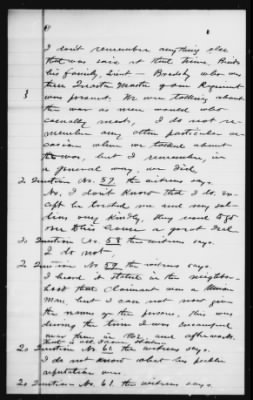 I don't remember anything else
that was said at that time. Besides
his family, Lieut - Bradsly who was
then Quarter Master of our Regiment
was present. We were talking about
the war as men would who
casually meet, I do not re-
member any other particular oc-
casion when we talked about
the war, but I remember, in
a general way we did.
To Question No. 57 the witness says.
No, I don't know that I do, ex-
cept he treated me and my sol-
diers very kindly, they used to go
over to his house a great deal
To Question No. 58 the witness says.
I do not
To Question No. 59 the witness says.
I heard it stated in the neighbor-
hood that Claimant was a Union
man, but I can not now give
the names of the persons, this was
during the time I was encamped
near them in 1862 and afterwards.
that is all I can state
To Question No. 60 the witness says.
I do not know what his public
reputation was.
To Question No. 61 the witness says.